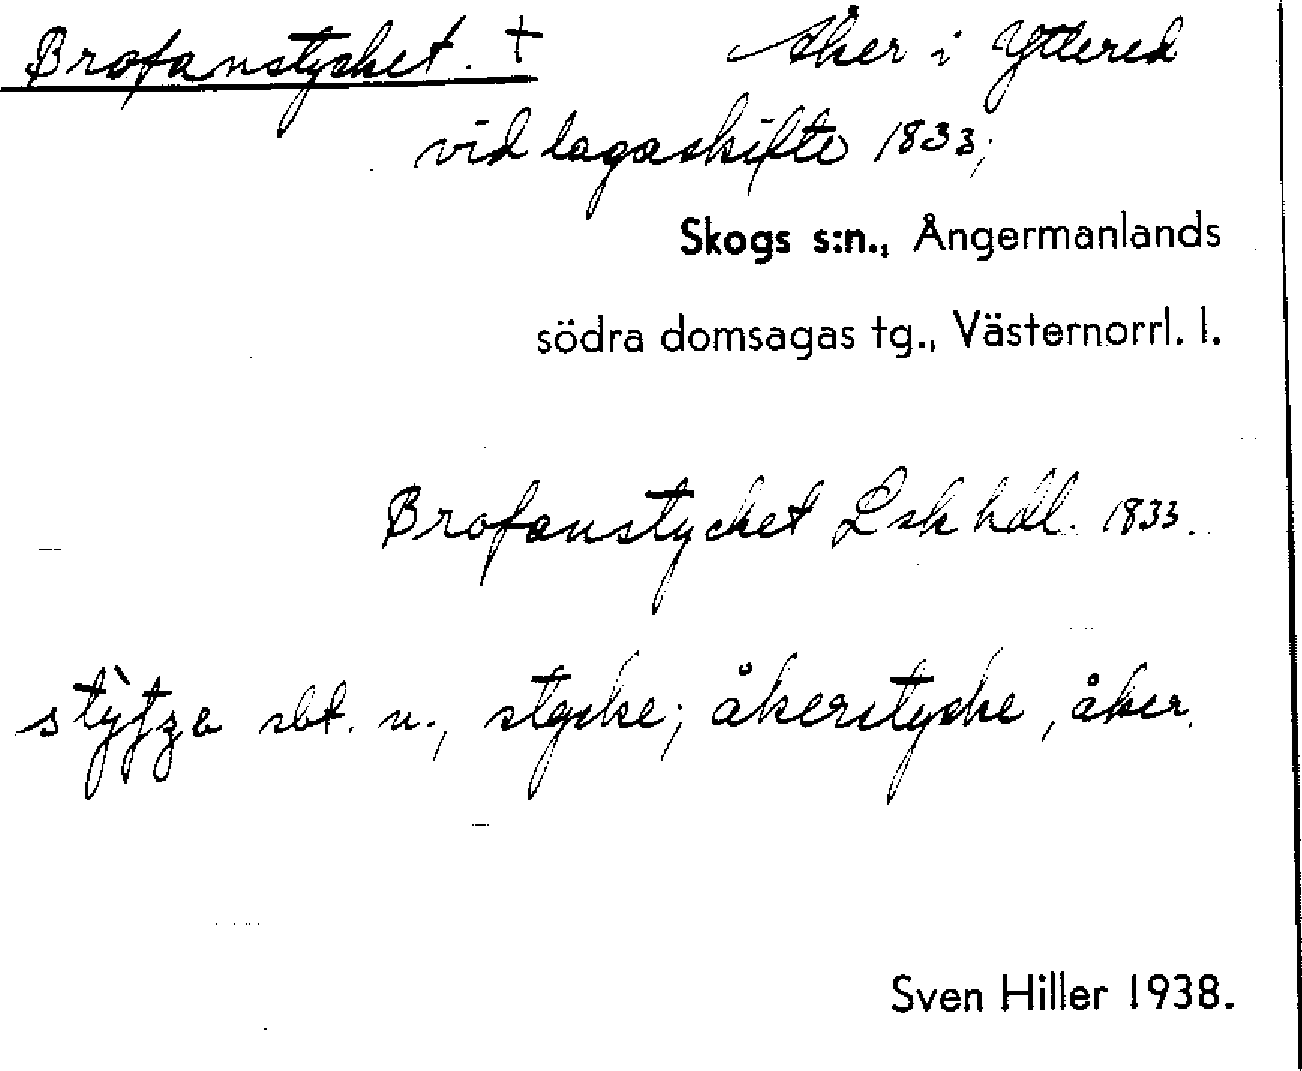 Brofanstycket. † Åker i Yttered
vid lagaskifte 1833;
Skogs s:n., Ångermanlands
södra domsagas tg., Västernorrl. l.
Brofanstycket Lsk hdl. 1833.
sbt. n., stycke; åkerstycke, åker.
Sven Hiller 1938.